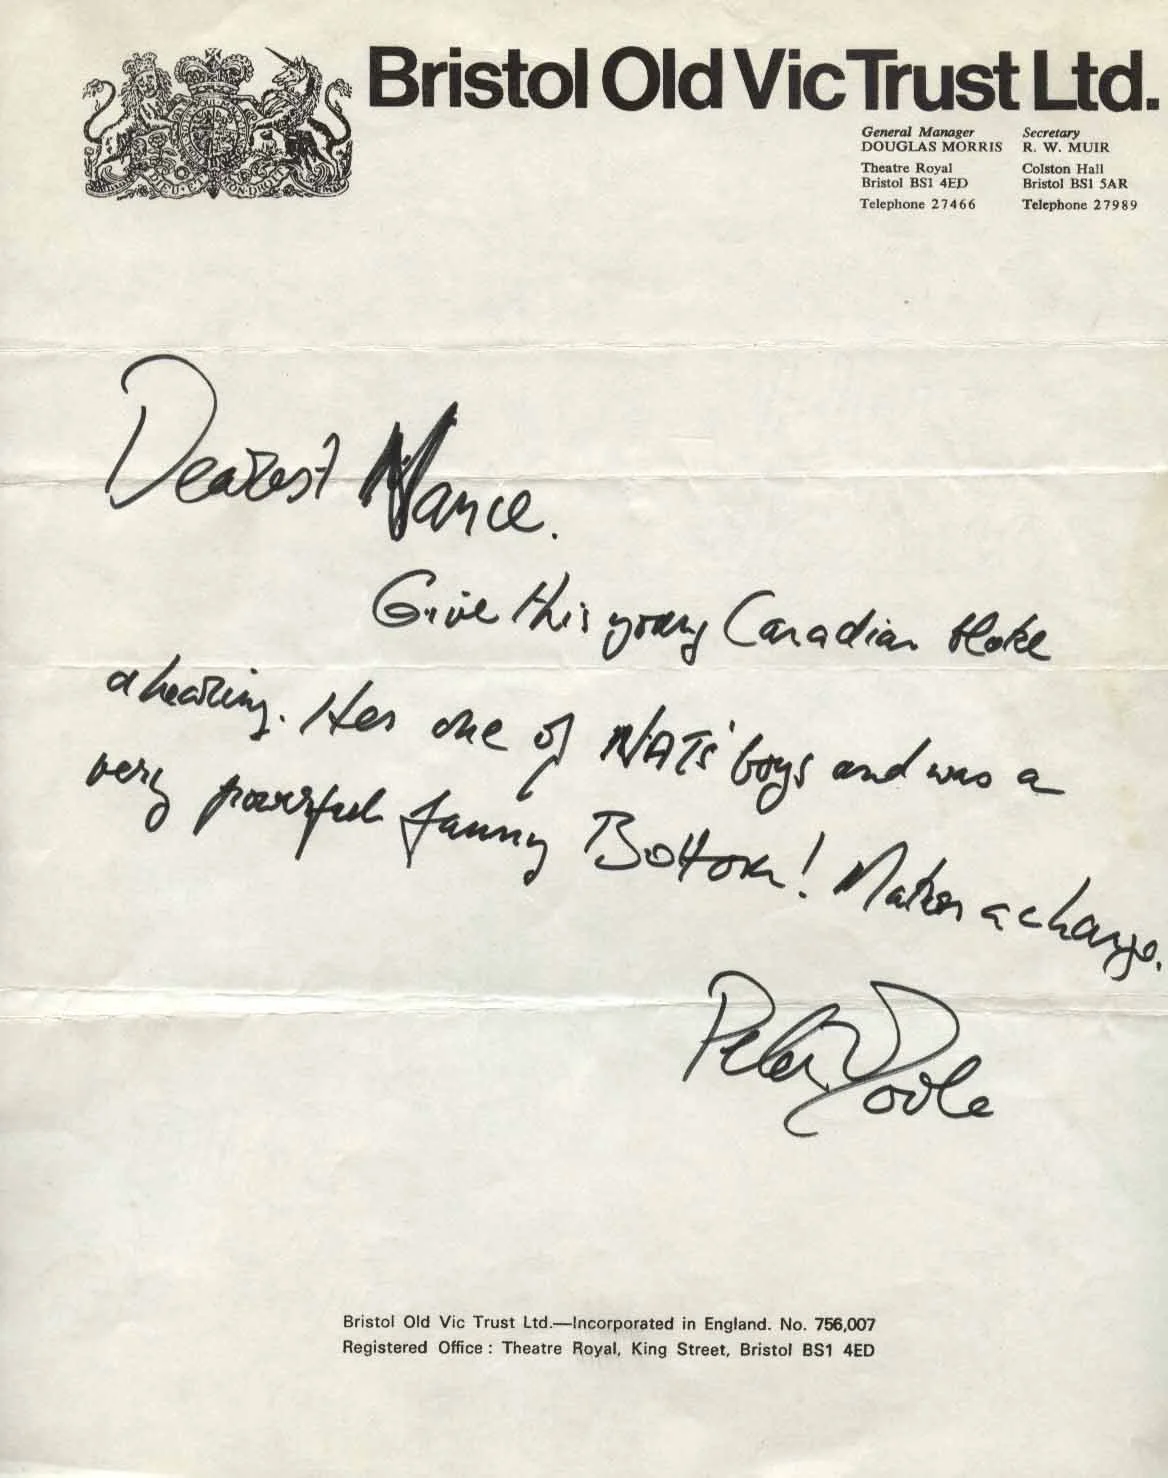 Bristol Old Vic Trust Ltd.
General Manager
DOUGLAS MORRIS
Theatre Royal
Bristol BS1 4ED
Telephone 27466
Secretary
R. W. MUIR
Colston Hall
Bristol BS1 5AR
Telephone 27989
DIEU ET MON DROIT
Dearest Nance.
Give this young Canadian bloke
a hearing. Hes one of NATs' boys and was a
very powerful funny Bottom! Makes a change.
Peter O'Toole
Bristol Old Vic Trust Ltd.—Incorporated in England. No. 756,007
Registered Office : Theatre Royal, King Street, Bristol BS1 4ED